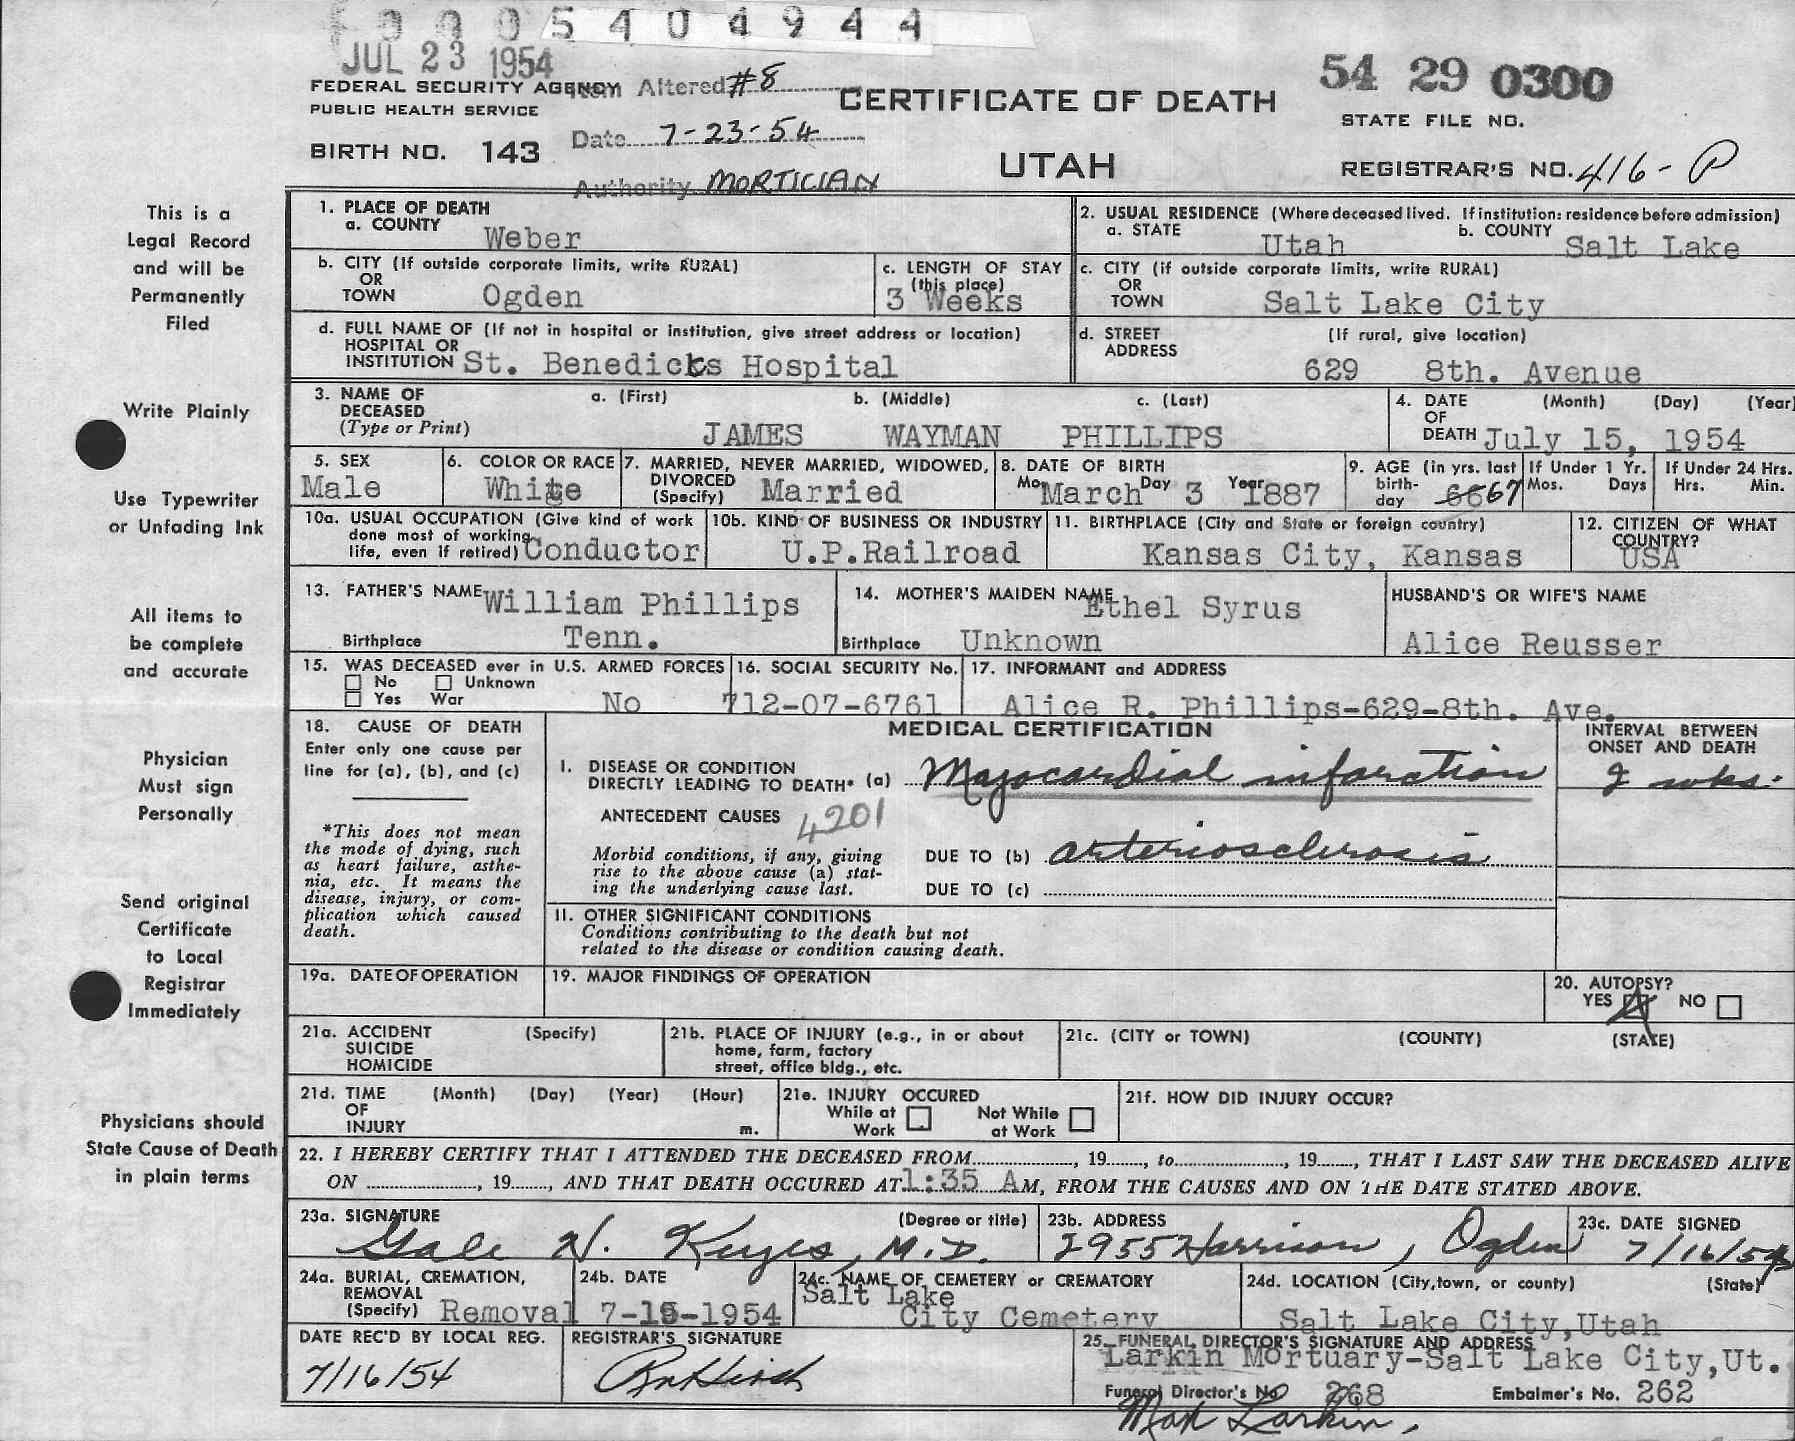 0005404944
JUL 23 1954
FEDERAL SECURITY AGENCY
PUBLIC HEALTH SERVICE
Item Altered #8
Date 7-23-54
Authority MORTICIAN
BIRTH NO. 143
CERTIFICATE OF DEATH
UTAH
54 29 0300
STATE FILE NO.
REGISTRAR'S NO. 416-P
This is a
Legal Record
and will be
Permanently
Filed
Write Plainly
Use Typewriter
or Unfading Ink
All items to
be complete
and accurate
Physician
Must sign
Personally
Send original
Certificate
to Local
Registrar
Immediately
Physicians should
State Cause of Death
in plain terms
1. PLACE OF DEATH
a. COUNTY Weber
2. USUAL RESIDENCE (Where deceased lived. If institution: residence before admission)
a. STATE Utah b. COUNTY Salt Lake
b. CITY (If outside corporate limits, write RURAL)
OR
TOWN Ogden
c. LENGTH OF STAY
(this place)
3 Weeks
c. CITY (if outside corporate limits, write RURAL)
OR
TOWN Salt Lake City
d. FULL NAME OF (If not in hospital or institution, give street address or location)
HOSPITAL OR
INSTITUTION St. Benedicts Hospital
d. STREET (If rural, give location)
ADDRESS
629 8th. Avenue
3. NAME OF a. (First) b. (Middle) c. (Last)
DECEASED
(Type or Print) JAMES WAYMAN PHILLIPS
4. DATE (Month) (Day) (Year)
OF
DEATH July 15, 1954
5. SEX
Male
6. COLOR OR RACE
White
7. MARRIED, NEVER MARRIED, WIDOWED,
DIVORCED
(Specify) Married
8. DATE OF BIRTH
Mo. March Day 3 Year 1887
9. AGE (in yrs. last
birth-
day 66 67
If Under 1 Yr.
Mos. Days
If Under 24 Hrs.
Hrs. Min.
10a. USUAL OCCUPATION (Give kind of work
done most of working
life, even if retired) Conductor
10b. KIND OF BUSINESS OR INDUSTRY
U.P.Railroad
11. BIRTHPLACE (City and State or foreign country)
Kansas City, Kansas
12. CITIZEN OF WHAT
COUNTRY?
USA
13. FATHER'S NAME William Phillips
Birthplace Tenn.
14. MOTHER'S MAIDEN NAME Ethel Syrus
Birthplace Unknown
HUSBAND'S OR WIFE'S NAME
Alice Reusser
15. WAS DECEASED ever in U.S. ARMED FORCES
No Unknown
Yes War No
16. SOCIAL SECURITY No.
712-07-6761
17. INFORMANT and ADDRESS
Alice R. Phillips-629-8th. Ave.
18. CAUSE OF DEATH
Enter only one cause per
line for (a), (b), and (c)
*This does not mean
the mode of dying, such
as heart failure, asthe-
nia, etc. It means the
disease, injury, or com-
plication which caused
death.
MEDICAL CERTIFICATION
I. DISEASE OR CONDITION
DIRECTLY LEADING TO DEATH* (a) Myocardial infarction
ANTECEDENT CAUSES 4201
Morbid conditions, if any, giving
rise to the above cause (a) stat-
ing the underlying cause last.
DUE TO (b) arteriosclerosis
DUE TO (c)
INTERVAL BETWEEN
ONSET AND DEATH
2 wks.
II. OTHER SIGNIFICANT CONDITIONS
Conditions contributing to the death but not
related to the disease or condition causing death.
19a. DATE OF OPERATION
19. MAJOR FINDINGS OF OPERATION
20. AUTOPSY?
YES NO
21a. ACCIDENT (Specify)
SUICIDE
HOMICIDE
21b. PLACE OF INJURY (e.g., in or about
home, farm, factory
street, office bldg., etc.
21c. (CITY or TOWN) (COUNTY) (STATE)
21d. TIME (Month) (Day) (Year) (Hour)
OF
INJURY m.
21e. INJURY OCCURED
While at Not While
Work at Work
21f. HOW DID INJURY OCCUR?
22. I HEREBY CERTIFY THAT I ATTENDED THE DECEASED FROM, 19, to, 19, THAT I LAST SAW THE DECEASED ALIVE
ON, 19, AND THAT DEATH OCCURED AT 1:35 A M, FROM THE CAUSES AND ON THE DATE STATED ABOVE.
23a. SIGNATURE (Degree or title)
Gale N. Keyes, M.D.
23b. ADDRESS
2955 Harrison, Ogden
23c. DATE SIGNED
7/16/54
24a. BURIAL, CREMATION,
REMOVAL
(Specify) Removal
24b. DATE
7-15-1954
24c. NAME OF CEMETERY or CREMATORY
Salt Lake
City Cemetery
24d. LOCATION (City, town, or county) (State)
Salt Lake City,Utah
DATE REC'D BY LOCAL REG.
7/16/54
REGISTRAR'S SIGNATURE
25. FUNERAL DIRECTOR'S SIGNATURE AND ADDRESS
Larkin Mortuary-Salt Lake City,Ut.
Funeral Director's No 268 Embalmer's No. 262
Max Larkin.